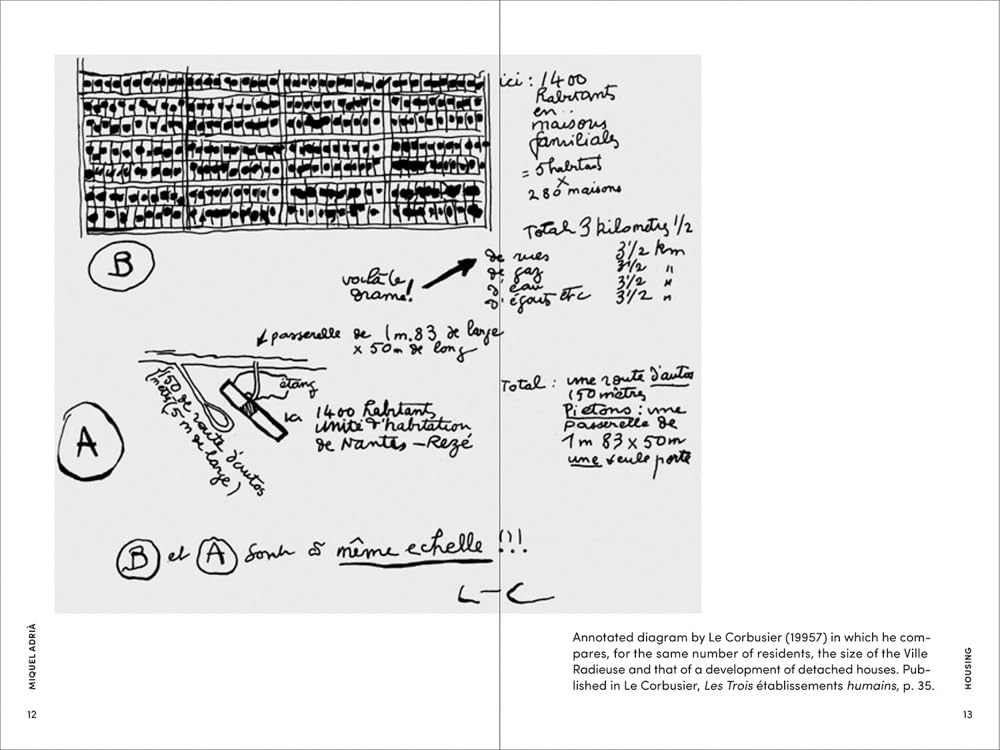 ici : 1400
Habitants
en
maisons
familiales
= 5 habitant
x
280 maisons
Total 3 kilometres 1/2
de rues 3 1/2 km
de gaz 3 1/2 "
d'eau 3 1/2 "
d'égouts etc 3 1/2 "
B
voilà le
drame!
passerelle de 1m.83 de large
x 50m de long
étang
150 de route d'autos
(5 m de large)
A
ici
1400 habitants
Unité d'habitation
de Nantes – Rezé
Total : une route d'autos
150 mètres
Piétons : une
passerelle de
1m 83 x 50m
une seule porte
B et A sont à même echelle !!!
L–C
Annotated diagram by Le Corbusier (19957) in which he com-
pares, for the same number of residents, the size of the Ville
Radieuse and that of a development of detached houses. Pub-
lished in Le Corbusier, Les Trois établissements humains, p. 35.
MIQUEL ADRIÀ
12
HOUSING
13